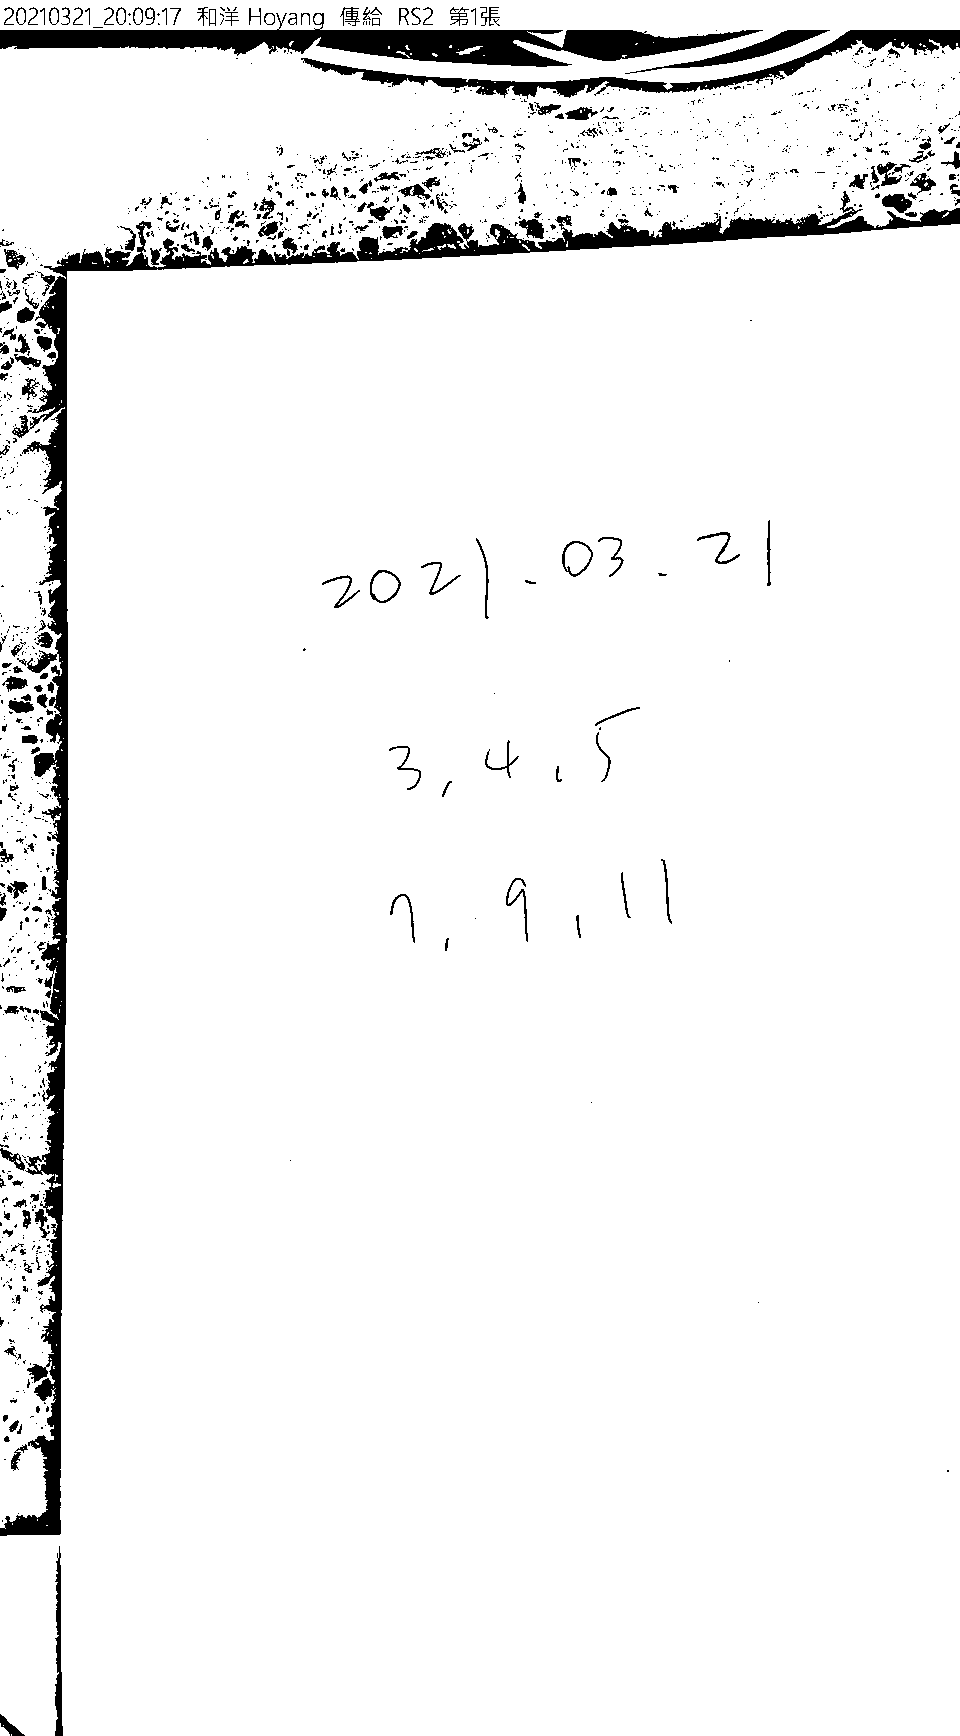 20210321_20:09:17 和洋 Hoyang 傳給 RS2 第1張
2021.03.21
3, 4, 5
7, 9, 11